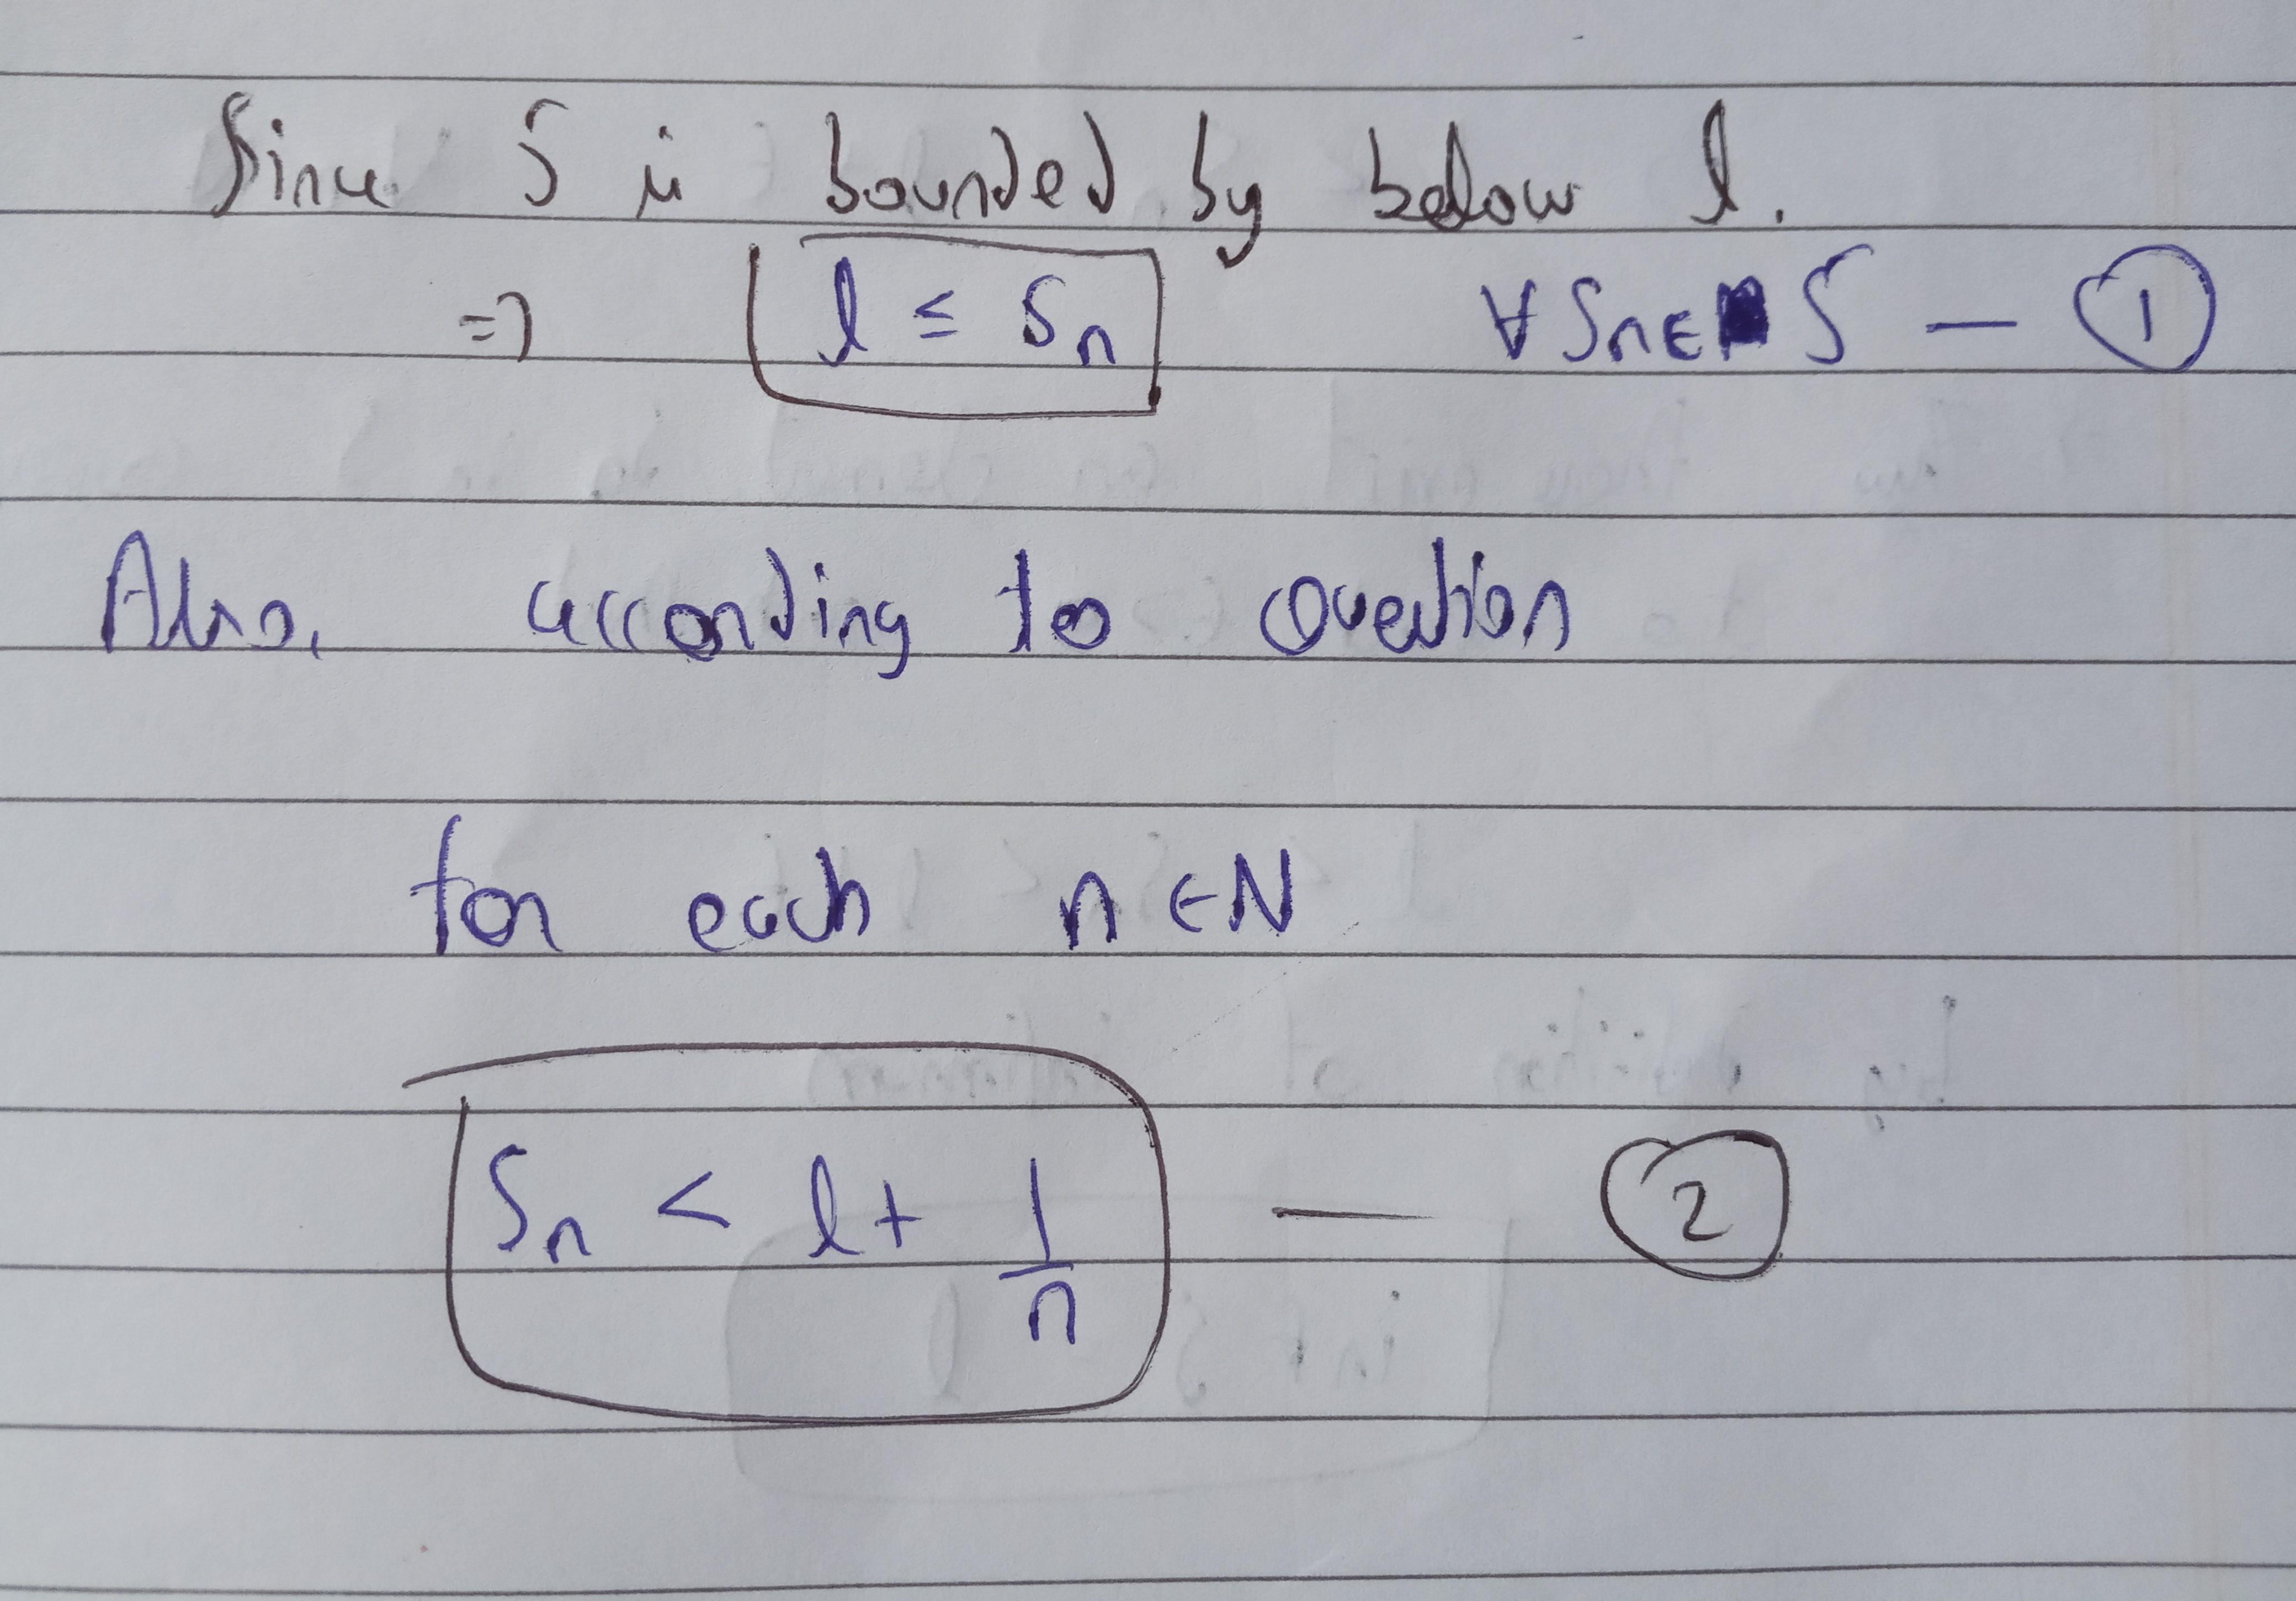 Since S is bounded by below l.
=> l ≤ Sn ∀ Sn ∈ S — ①
Also, according to Question
for each n ∈ N
Sn < l + 1/n — ②